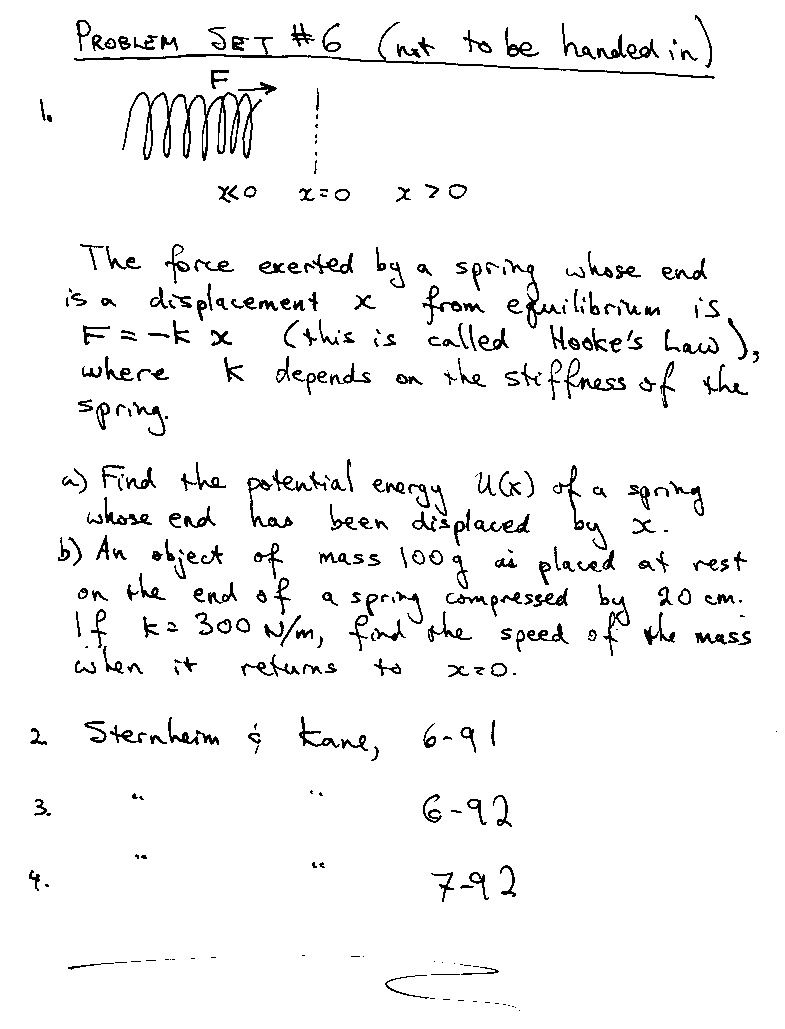 PROBLEM SET #6 (not to be handed in)
F
1.
x<0 x=0 x>0
The force exerted by a spring whose end
is a displacement x from equilibrium is
F = -k x (this is called Hooke's Law),
where k depends on the stiffness of the
spring.
a) Find the potential energy U(x) of a spring
whose end has been displaced by x.
b) An object of mass 100g is placed at rest
on the end of a spring compressed by 20 cm.
If k = 300 N/m, find the speed of the mass
when it returns to x=0.
2. Sternheim & Kane, 6-91
3. " " 6-92
4. " " 7-92